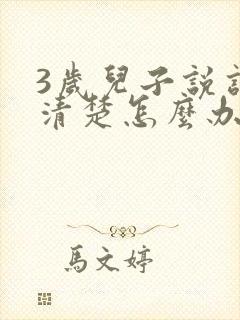 3歲兒子說
清楚怎麼办
馬文婷